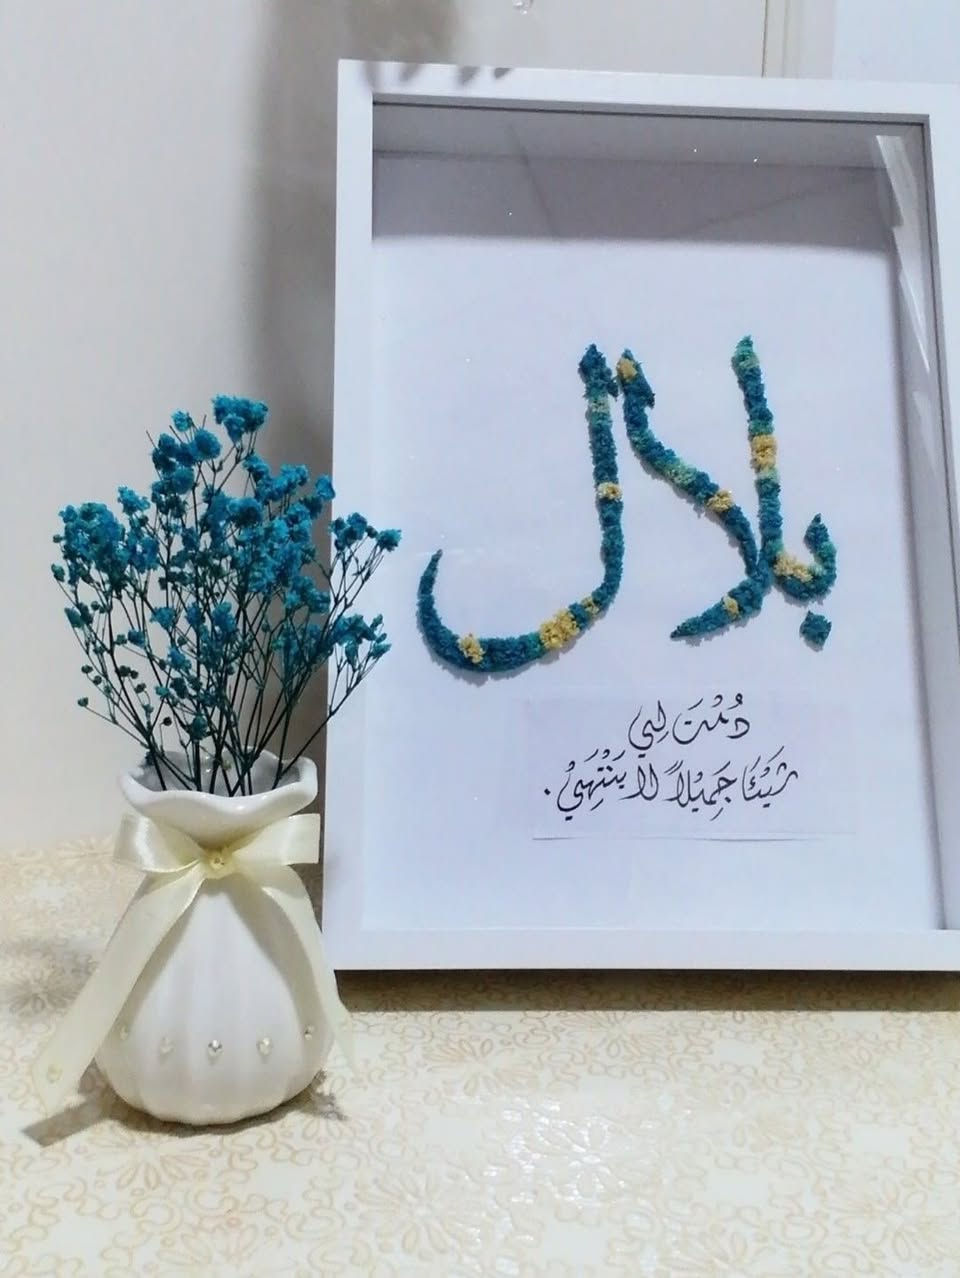 بلال
دُمْتَ لِي
شَيْئًا جَمِيْلاً لا يَنْتَهِيْ.